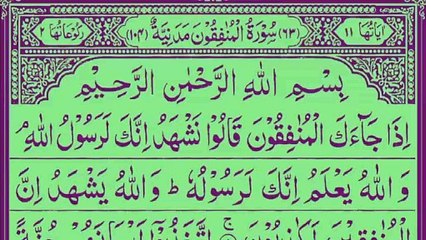 اٰيَاتُهَا ١١ (٦٣) سُوْرَةُ الْمُنٰفِقُوْنَ مَدَنِيَّةٌ (١٠٤) رُكُوْعَاتُهَا ٢
بِسْمِ اللّٰهِ الرَّحْمٰنِ الرَّحِيْمِ
اِذَا جَآءَكَ الْمُنٰفِقُوْنَ قَالُوْا نَشْهَدُ اِنَّكَ لَرَسُوْلُ اللّٰهِ ۘ
وَ اللّٰهُ يَعْلَمُ اِنَّكَ لَرَسُوْلُهٗ ؕ وَ اللّٰهُ يَشْهَدُ اِنَّ
الْمُنٰفِقِيْنَ لَكٰذِبُوْنَ ۚ اِتَّخَذُوْۤا اَيْمَانَهُمْ جُنَّةً